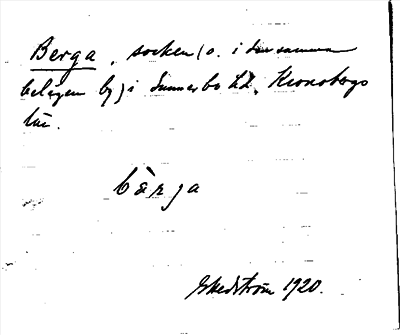 Berga, socken (o. i densamma
belägen by) i Sunnerbo hd, Kronobergs
län.
bärja
Ekedström 1920.